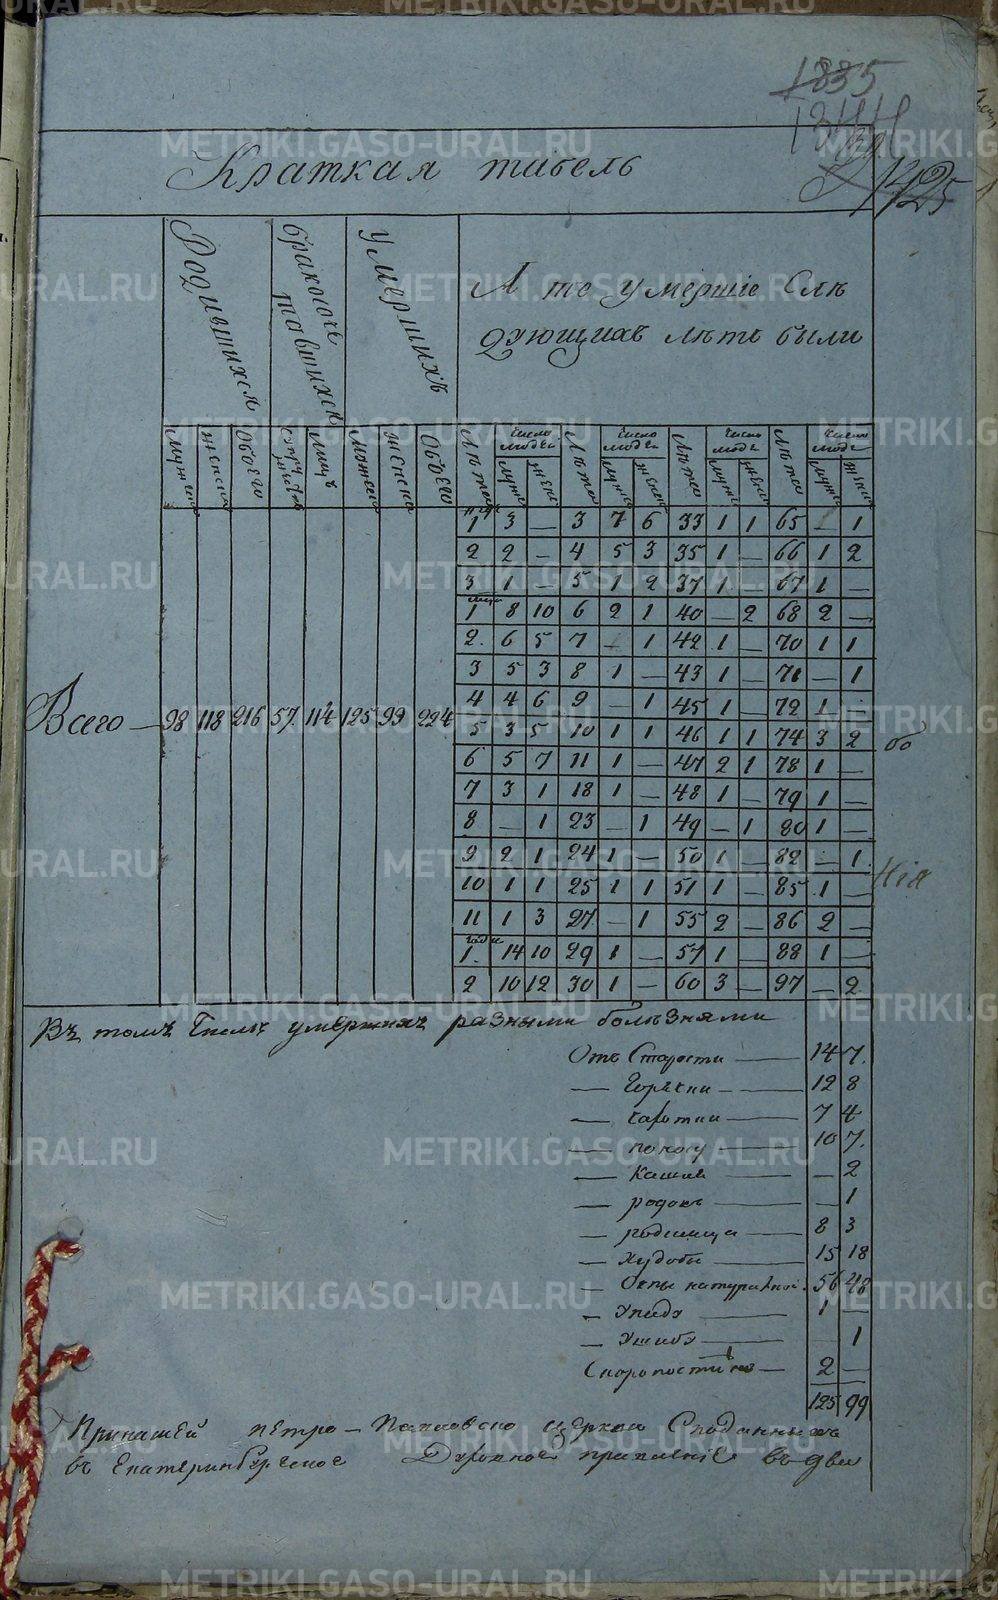 1835
1344
1425
Краткая табель
Родившихся
бракосочетавшихся
умершихъ
А те умершiе Слѣ
дующихъ лѣтъ были
Мужеска Женска Обоего Супружествъ Лицъ Мужеска Женска Обоего Лѣта Число людей Лѣта Число людей Лѣта Число люде Лѣта Число люде
Муже Женс Муже Женс Муже Женс Муже Женс
1 3 — 3 7 6 33 1 1 65 — 1
2 2 — 4 5 3 35 1 — 66 1 2
3 1 — 5 1 2 37 1 — 67 1 —
1 8 10 6 2 1 40 — 2 68 2 —
2 6 5 7 — 1 42 1 — 70 1 1
3 5 3 8 1 — 43 1 — 71 — 1
4 4 6 9 — 1 45 1 — 72 1 —
Всего — 98 118 216 57 114 125 99 224
5 3 5 10 1 1 46 1 1 74 3 2
6 5 7 11 1 — 47 2 1 78 1 —
7 3 1 18 1 — 48 1 — 79 1 —
8 — 1 23 — 1 49 — 1 80 1 —
9 2 1 24 1 — 50 1 — 82 — 1
10 1 1 25 1 1 51 1 — 85 1 —
11 1 3 27 — 1 55 2 — 86 2 —
1 14 10 29 1 — 57 1 — 88 1 —
2 10 12 30 1 — 60 3 — 97 — 2
бо
нiя
Въ томъ Числѣ умершихъ разными болѣзнями
Отъ Старости — 14 7
— Горячки — 12 8
— Чахотки — 7 4
— поносу — 10 7
— Кашля — — 2
— родовъ — — 1
— родимца — 8 3
— худобы — 15 18
— Оспы натуральной 56 48
— Упаду — 1 —
— Ушибу — — 1
Скоропостижно — 2 —
125 99
При нашей Петро-Павловско церкви Сподданныхъ
въ Екатеринбургское Духовное правленiе въ две
METRIKI.GASO-URAL.RU